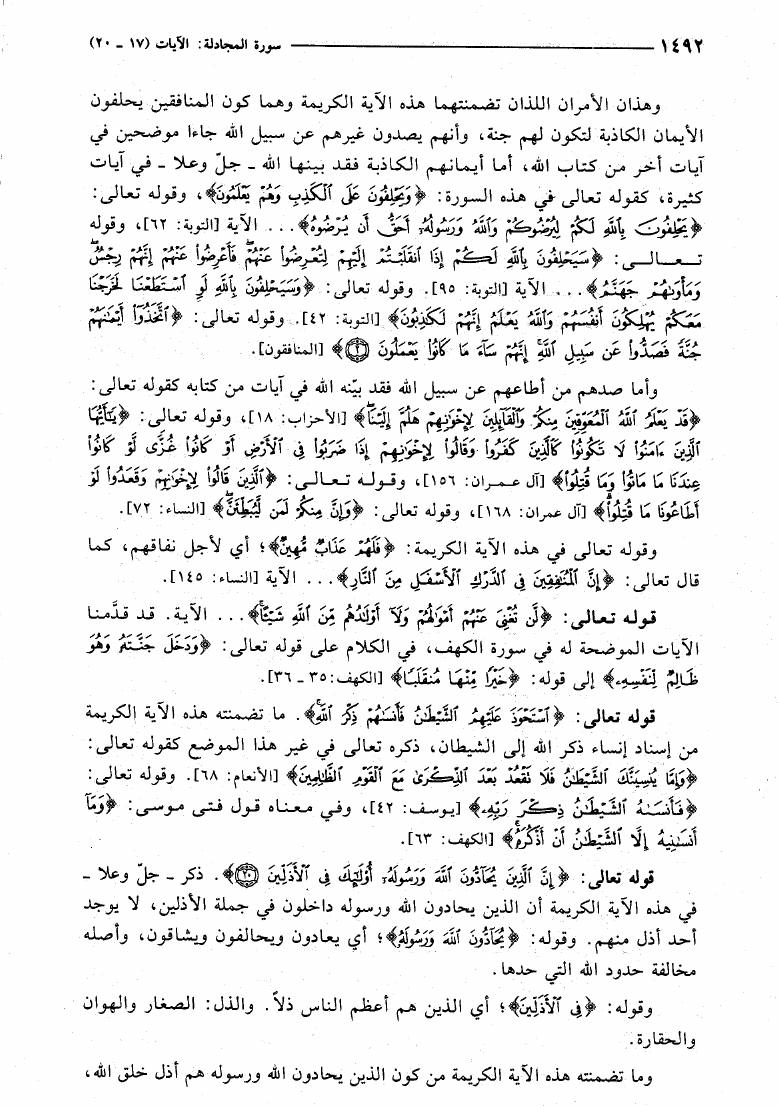 ١٤٩٢ سورة المجادلة: الآيات (١٧ ـ ٢٠)
وهذان الأمران اللذان تضمنتهما هذه الآية الكريمة وهما كون المنافقين يحلفون
الأيمان الكاذبة لتكون لهم جنة، وأنهم يصدون غيرهم عن سبيل الله جاءا موضحين في
آيات أخر من كتاب الله، أما أيمانهم الكاذبة فقد بينها الله ـ جلّ وعلا ـ في آيات
كثيرة، كقوله تعالى في هذه السورة: ﴿وَيَحْلِفُونَ عَلَى ٱلْكَذِبِ وَهُمْ يَعْلَمُونَ﴾، وقوله تعالى:
﴿يَحْلِفُونَ بِٱللَّهِ لَكُمْ لِيُرْضُوكُمْ وَٱللَّهُ وَرَسُولُهُۥٓ أَحَقُّ أَن يُرْضُوهُ﴾... الآية [التوبة: ٦٢]، وقوله
تـعـالـى: ﴿سَيَحْلِفُونَ بِٱللَّهِ لَكُمْ إِذَا ٱنقَلَبْتُمْ إِلَيْهِمْ لِتُعْرِضُوا۟ عَنْهُمْ فَأَعْرِضُوا۟ عَنْهُمْ إِنَّهُمْ رِجْسٌ
وَمَأْوَىٰهُمْ جَهَنَّمُ﴾... الآية [التوبة: ٩٥]. وقوله تعالى: ﴿وَسَيَحْلِفُونَ بِٱللَّهِ لَوِ ٱسْتَطَعْنَا لَخَرَجْنَا
مَعَكُمْ يُهْلِكُونَ أَنفُسَهُمْ وَٱللَّهُ يَعْلَمُ إِنَّهُمْ لَكَٰذِبُونَ﴾ [التوبة: ٤٢]. وقوله تعالى: ﴿ٱتَّخَذُوٓا۟ أَيْمَٰنَهُمْ
جُنَّةً فَصَدُّوا۟ عَن سَبِيلِ ٱللَّهِ إِنَّهُمْ سَآءَ مَا كَانُوا۟ يَعْمَلُونَ ٢﴾ [المنافقون].
وأما صدهم من أطاعهم عن سبيل الله فقد بيّنه الله في آيات من كتابه كقوله تعالى:
﴿قَدْ يَعْلَمُ ٱللَّهُ ٱلْمُعَوِّقِينَ مِنكُمْ وَٱلْقَآئِلِينَ لِإِخْوَٰنِهِمْ هَلُمَّ إِلَيْنَا﴾ [الأحزاب: ١٨]، وقوله تعالى: ﴿يَٰٓأَيُّهَا
ٱلَّذِينَ ءَامَنُوا۟ لَا تَكُونُوا۟ كَٱلَّذِينَ كَفَرُوا۟ وَقَالُوا۟ لِإِخْوَٰنِهِمْ إِذَا ضَرَبُوا۟ فِى ٱلْأَرْضِ أَوْ كَانُوا۟ غُزًّى لَّوْ كَانُوا۟
عِندَنَا مَا مَاتُوا۟ وَمَا قُتِلُوا۟﴾ [آل عـمـران: ١٥٦]، وقـولـه تـعـالـى: ﴿ٱلَّذِينَ قَالُوا۟ لِإِخْوَٰنِهِمْ وَقَعَدُوا۟ لَوْ
أَطَاعُونَا مَا قُتِلُوا۟﴾ [آل عمران: ١٦٨]، وقوله تعالى: ﴿وَإِنَّ مِنكُمْ لَمَن لَّيُبَطِّئَنَّ﴾ [النساء: ٧٢].
وقوله تعالى في هذه الآية الكريمة: ﴿فَلَهُمْ عَذَابٌ مُّهِينٌ﴾؛ أي لأجل نفاقهم، كما
قال تعالى: ﴿إِنَّ ٱلْمُنَٰفِقِينَ فِى ٱلدَّرْكِ ٱلْأَسْفَلِ مِنَ ٱلنَّارِ﴾... الآية [النساء: ١٤٥].
قوله تعالى: ﴿لَّن تُغْنِىَ عَنْهُمْ أَمْوَٰلُهُمْ وَلَآ أَوْلَٰدُهُم مِّنَ ٱللَّهِ شَيْـًٔا﴾... الآية. قد قدَّمنا
الآيات الموضحة له في سورة الكهف، في الكلام على قوله تعالى: ﴿وَدَخَلَ جَنَّتَهُۥ وَهُوَ
ظَالِمٌ لِّنَفْسِهِۦ﴾ إلى قوله: ﴿خَيْرًا مِّنْهَا مُنقَلَبًا﴾ [الكهف: ٣٥ ـ ٣٦].
قوله تعالى: ﴿ٱسْتَحْوَذَ عَلَيْهِمُ ٱلشَّيْطَٰنُ فَأَنسَىٰهُمْ ذِكْرَ ٱللَّهِ﴾. ما تضمنته هذه الآية الكريمة
من إسناد إنساء ذكر الله إلى الشيطان، ذكره تعالى في غير هذا الموضع كقوله تعالى:
﴿وَإِمَّا يُنسِيَنَّكَ ٱلشَّيْطَٰنُ فَلَا تَقْعُدْ بَعْدَ ٱلذِّكْرَىٰ مَعَ ٱلْقَوْمِ ٱلظَّٰلِمِينَ﴾ [الأنعام: ٦٨]. وقوله تعالى:
﴿فَأَنسَىٰهُ ٱلشَّيْطَٰنُ ذِكْرَ رَبِّهِۦ﴾ [يوسف: ٤٢]، وفي معـناه قول فتى موسى: ﴿وَمَآ
أَنسَىٰنِيهُ إِلَّا ٱلشَّيْطَٰنُ أَنْ أَذْكُرَهُۥ﴾ [الكهف: ٦٣].
قوله تعالى: ﴿إِنَّ ٱلَّذِينَ يُحَآدُّونَ ٱللَّهَ وَرَسُولَهُۥٓ أُو۟لَٰٓئِكَ فِى ٱلْأَذَلِّينَ ٢٠﴾. ذكر ـ جلّ وعلا ـ
في هذه الآية الكريمة أن الذين يحادون الله ورسوله داخلون في جملة الأذلين، لا يوجد
أحد أذل منهم. وقوله: ﴿يُحَآدُّونَ ٱللَّهَ وَرَسُولَهُۥ﴾؛ أي يعادون ويحالفون ويشاقون، وأصله
مخالفة حدود الله التي حدها.
وقوله: ﴿فِى ٱلْأَذَلِّينَ﴾؛ أي الذين هم أعظم الناس ذلاً. والذل: الصغار والهوان
والحقارة.
وما تضمنته هذه الآية الكريمة من كون الذين يحادون الله ورسوله هم أذل خلق الله،